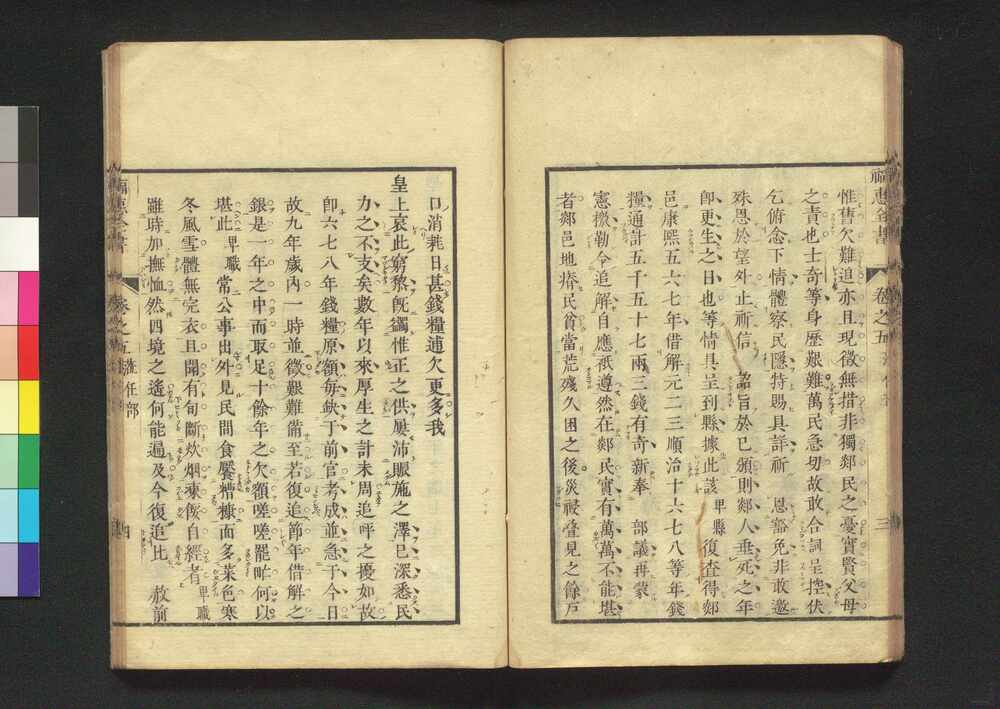 福惠全書 卷之五 三
惟舊欠難追亦且現徵無措非獨郯民之憂實賢父母
之責也士奇等身歷艱難萬民急切故敢合詞呈控伏
乞俯念下情體察民隱特賜具詳祈 恩豁免非敢邀
殊恩於望外止祈信 詔旨於已頒則郯人垂死之年
卽更生之日也等情具呈到縣據此該卑縣復查得郯
邑康熙五六七年借解元二三順治十六七八等年錢
糧通計五千五十七兩三錢有奇新奉 部議再蒙
憲檄勒令追解自應祇遵然在郯民實有萬萬不能堪
者郯邑地瘠民貧當荒殘久困之後災祲叠見之餘戶
口消耗日甚錢糧逋欠更多我
皇上哀此窮黎旣蠲惟正之供屢沛賑施之澤已深悉民
力之不支矣數年以來厚生之計未周追呼之擾如故
卽六七八年錢糧原額每缺于前官考成並急于今日
故九年歲內一時並徵艱難備至若復追節年借解之
銀是一年之中而取足十餘年之欠額嗟嗟罷甿何以
堪此卑職常公事出外見民間食饜糟糠面多菜色寒
冬風雪體無完衣且聞有旬斷炊烟凍餒自經者卑職
雖時加撫恤然四境之遙何能遍及今復追比 赦前
福惠全書 卷之五 蒞任部 四